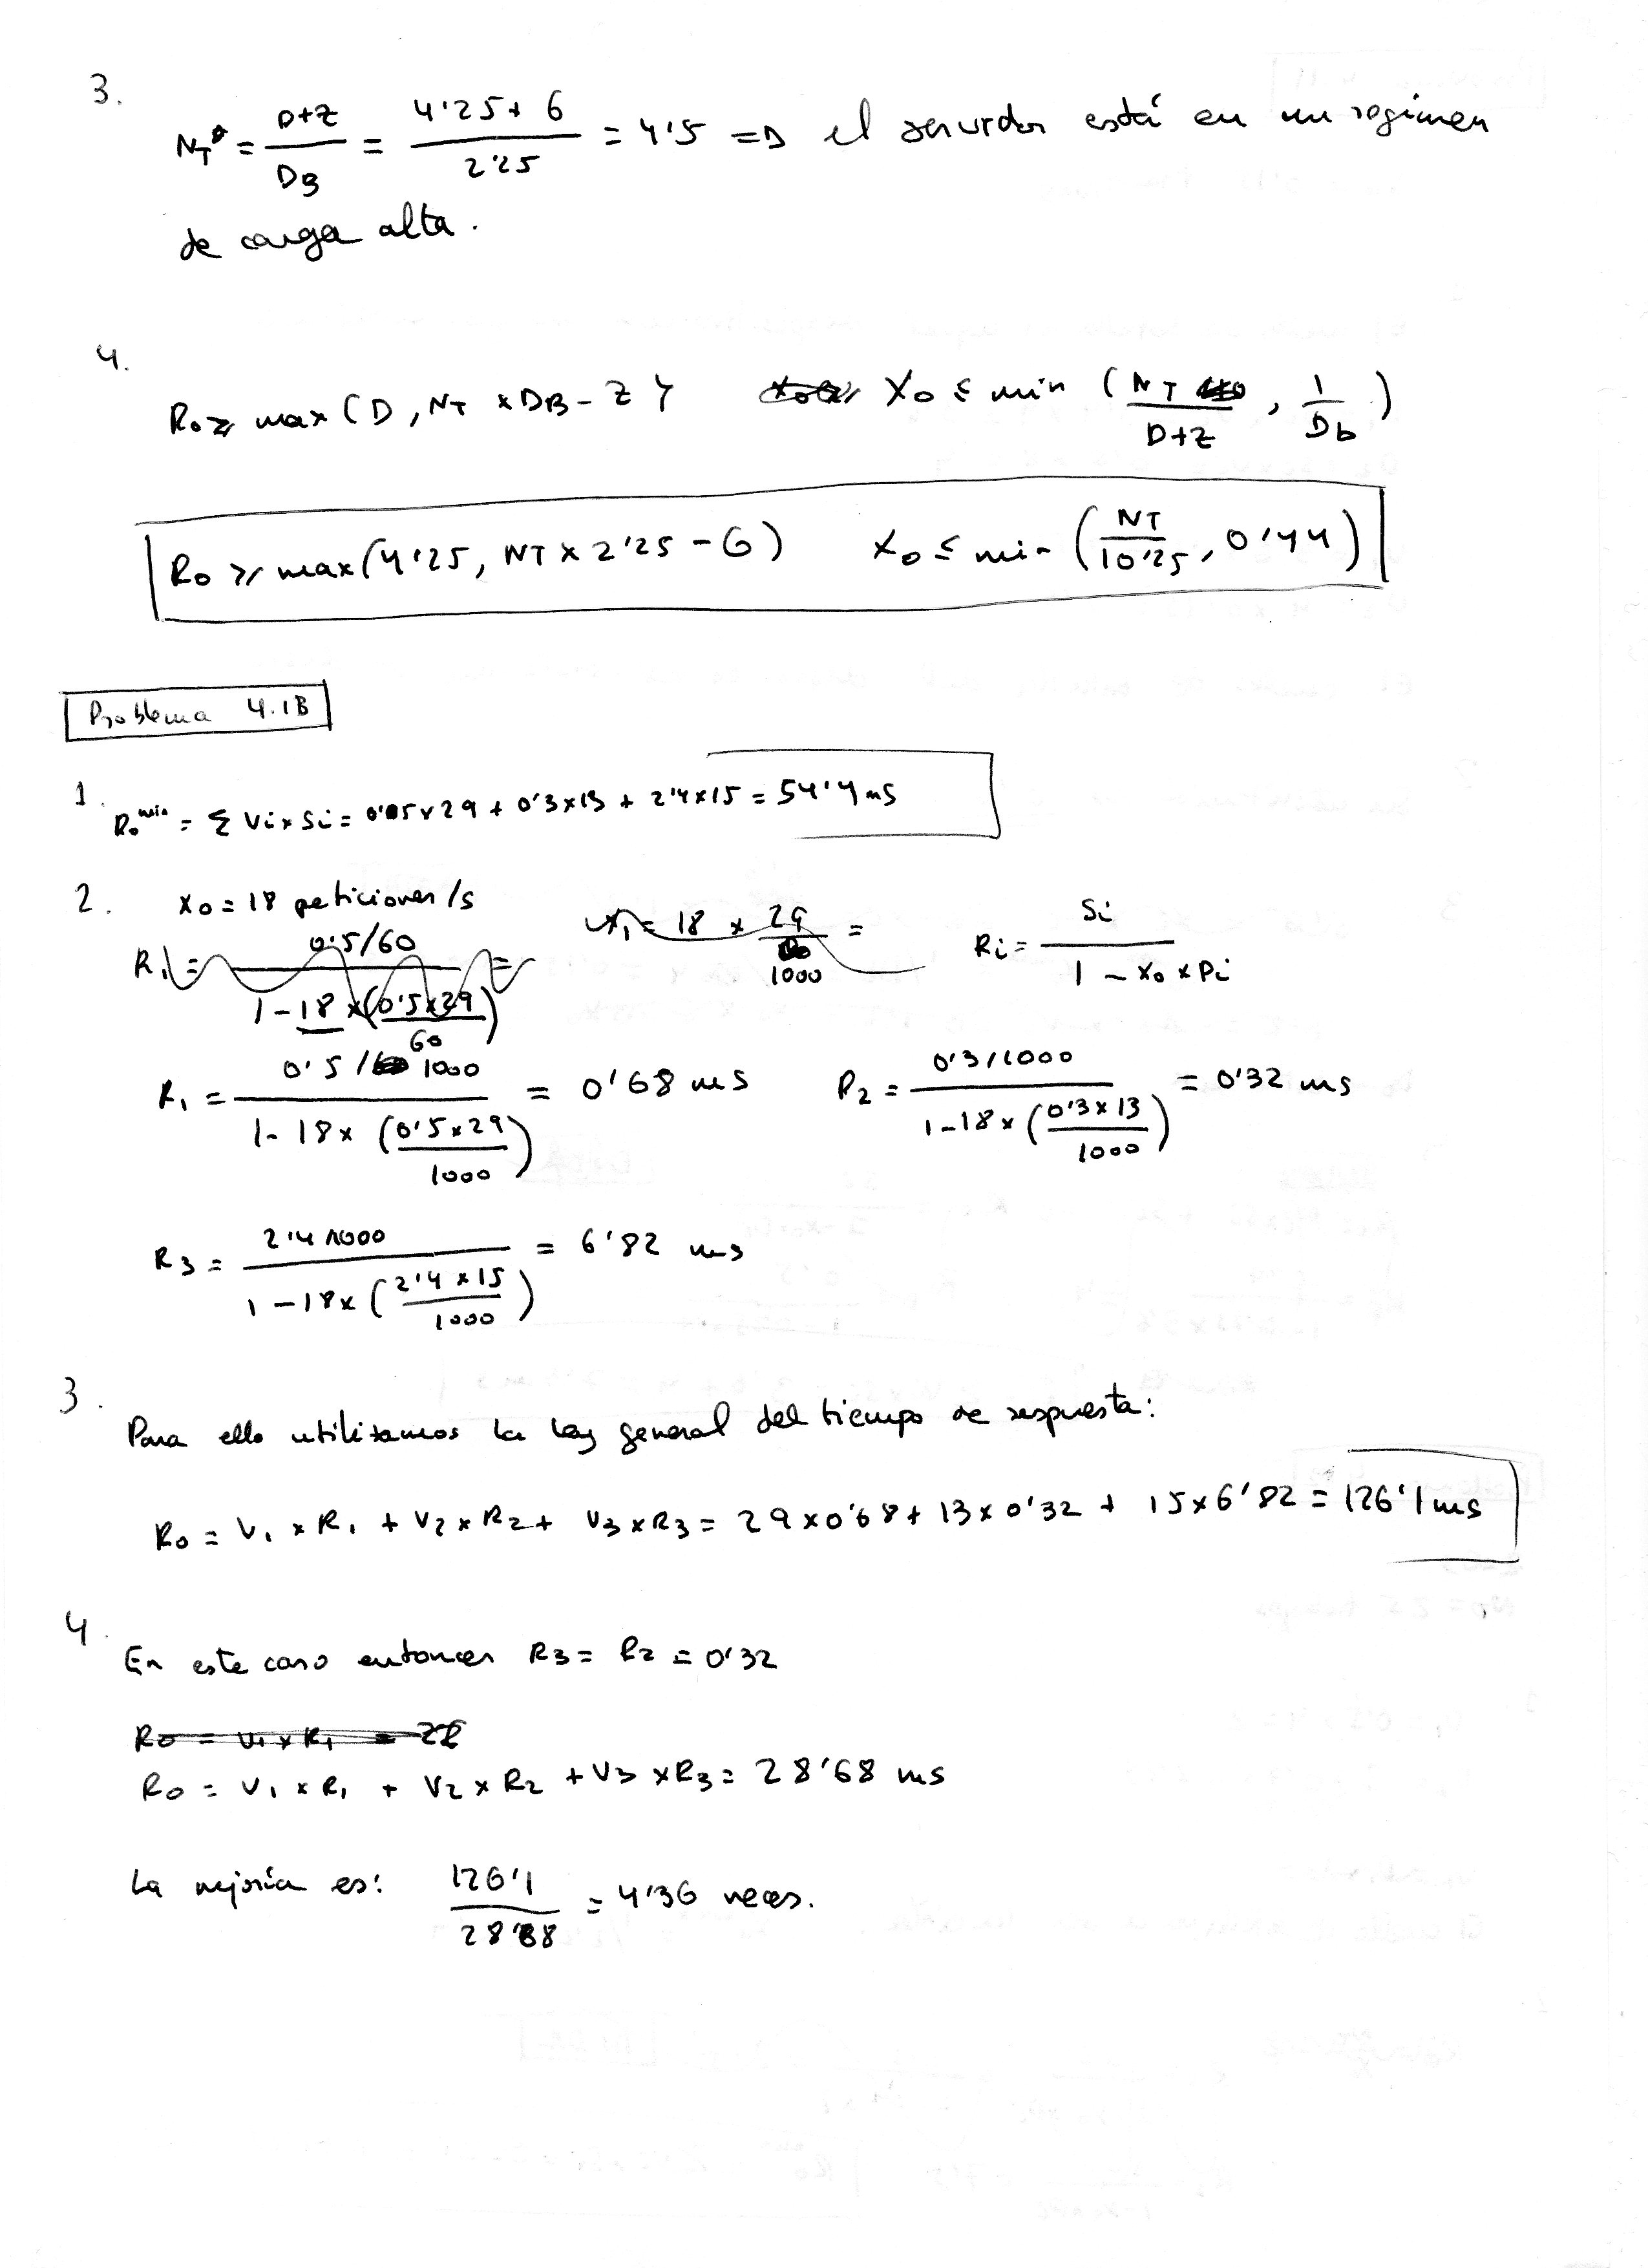 3.
N_T* = (D+Z)/D_B = (4'25+6)/2'25 = 4'5 => el servidor está en un regimen
de carga alta.
4.
R_0 ≥ max (D, N_T × D_B - Z) X_0 ≤ min (N_T/(D+Z), 1/D_b)
R_0 ≥ max (4'25, N_T × 2'25 - 6) X_0 ≤ min (N_T/10'25, 0'44)
Problema 4.1B
1. R_0^min = Σ Vi × Si = 0'05 × 29 + 0'3 × 13 + 2'4 × 15 = 54'4 ms
2. X_0 = 18 peticiones/s
R_1 = (0'5/60)/(1 - 18 × (0'5×29/60)) = X_1 = 18 × 29/1000 = Ri = Si/(1 - X_0 × Di)
R_1 = (0'5/1000)/(1 - 18 × (0'5×29/1000)) = 0'68 ms R_2 = (0'3/1000)/(1 - 18 × (0'3×13/1000)) = 0'32 ms
R_3 = (2'4/1000)/(1 - 18 × (2'4×15/1000)) = 6'82 ms
3.
Para ello utilizamos la ley general del tiempo de respuesta:
R_0 = V_1 × R_1 + V_2 × R_2 + V_3 × R_3 = 29 × 0'68 + 13 × 0'32 + 15 × 6'82 = 126'1 ms
4.
En este caso entonces R_3 = R_2 = 0'32
R_0 = V_1 × R_1 =
R_0 = V_1 × R_1 + V_2 × R_2 + V_3 × R_3 = 28'68 ms
La mejoría es: 126'1/28'68 = 4'36 veces.